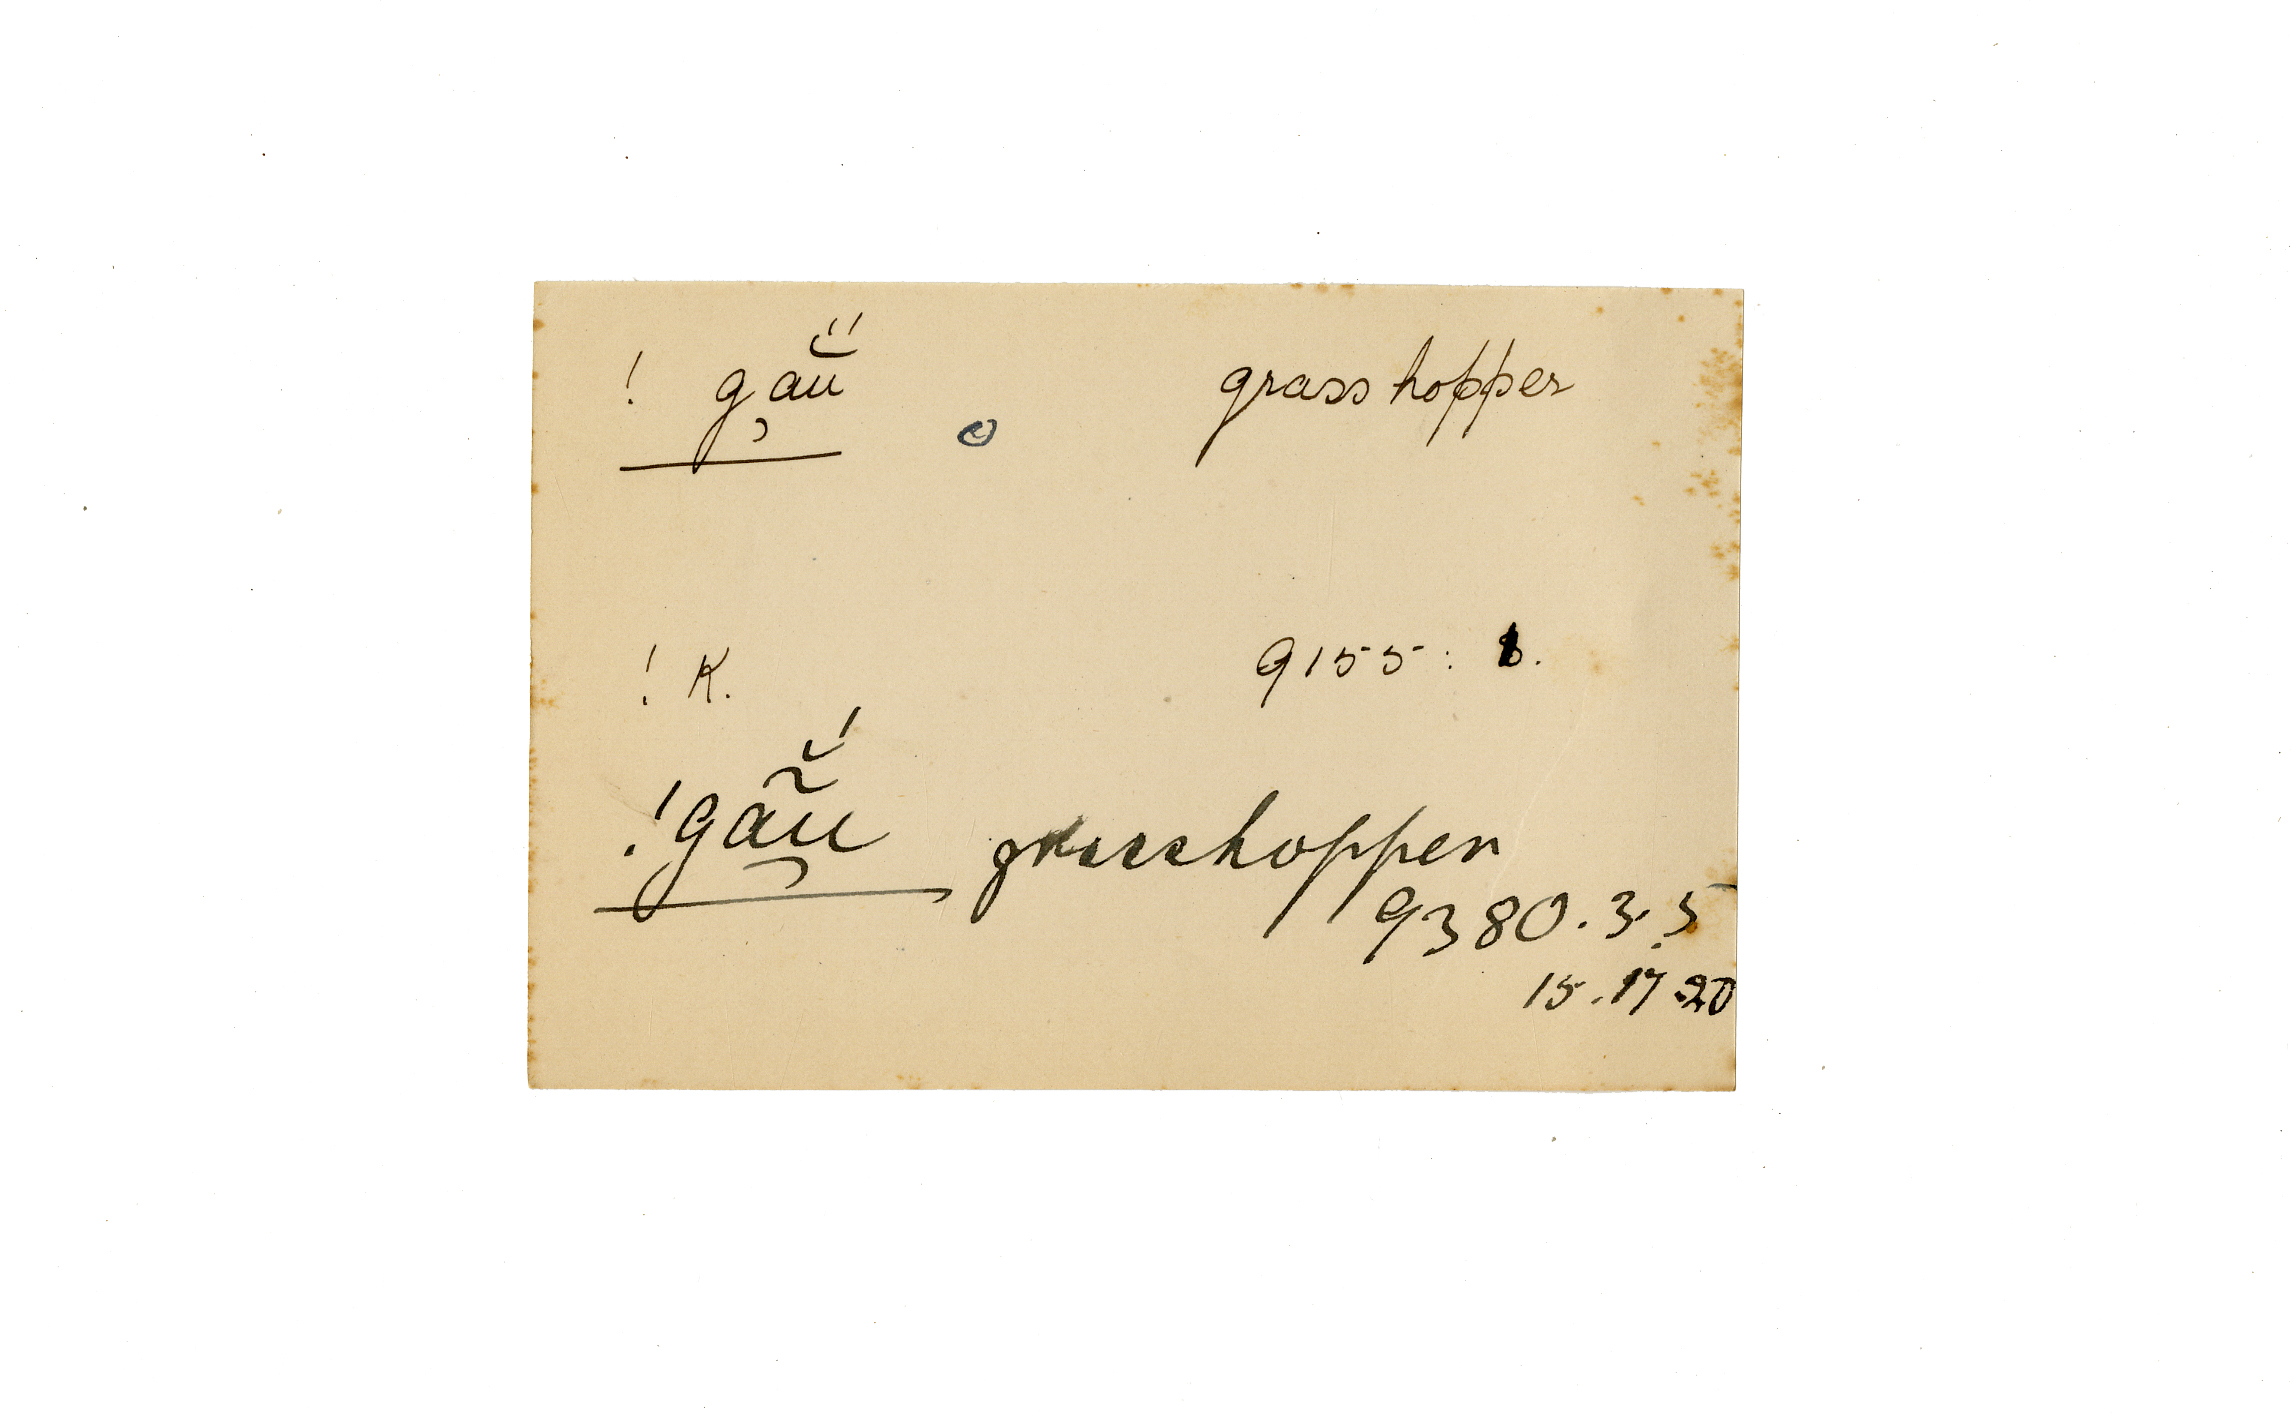 ! găű̯ grasshopper
! K. 9155:
!gãŭ́ grasshopper
9380.3.5
15.17.20